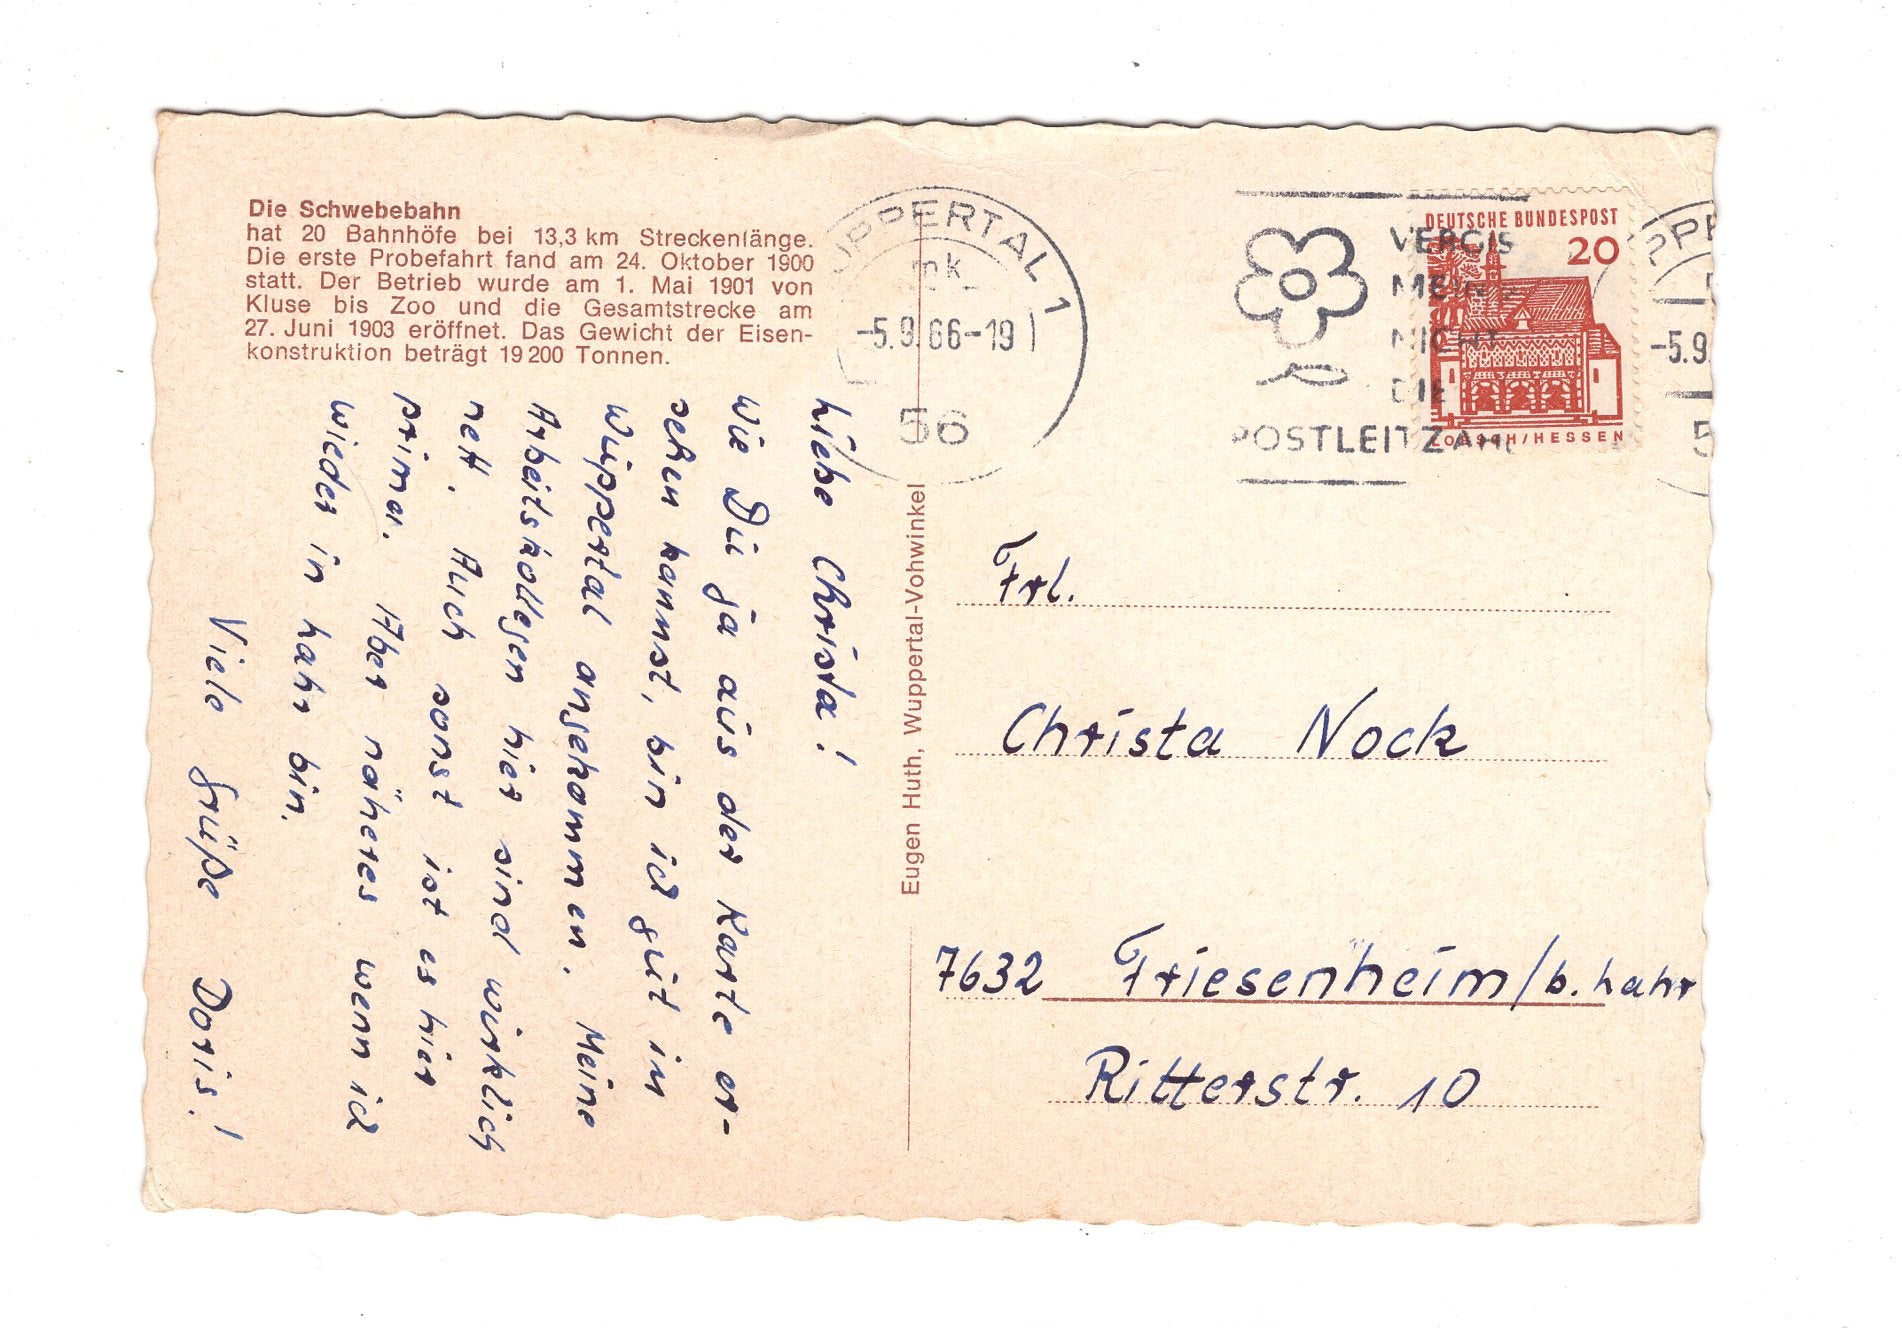 Die Schwebebahn
hat 20 Bahnhöfe bei 13,3 km Streckenlänge.
Die erste Probefahrt fand am 24. Oktober 1900
statt. Der Betrieb wurde am 1. Mai 1901 von
Kluse bis Zoo und die Gesamtstrecke am
27. Juni 1903 eröffnet. Das Gewicht der Eisen-
konstruktion beträgt 19 200 Tonnen.
Liebe Christa!
Wie Du ja aus der Karte er-
sehen kannst, bin ich gut in
Wuppertal angekommen. Meine
Arbeitskollegen hier sind wirklich
nett. Auch sonst ist es hier
prima. Aber näheres wenn ich
wieder in Lahr bin.
Viele Grüße Doris!
Eugen Huth, Wuppertal-Vohwinkel
UPPERTAL 1
mk
-5.9.66-19
56
VERGIS
MEIN
NICHT
DIE
POSTLEITZAHL
DEUTSCHE BUNDESPOST
20
LORSCH/HESSEN
PPE
-5.9
5
Frl.
Christa Nock
7632 Friesenheim/b. Lahr
Ritterstr. 10